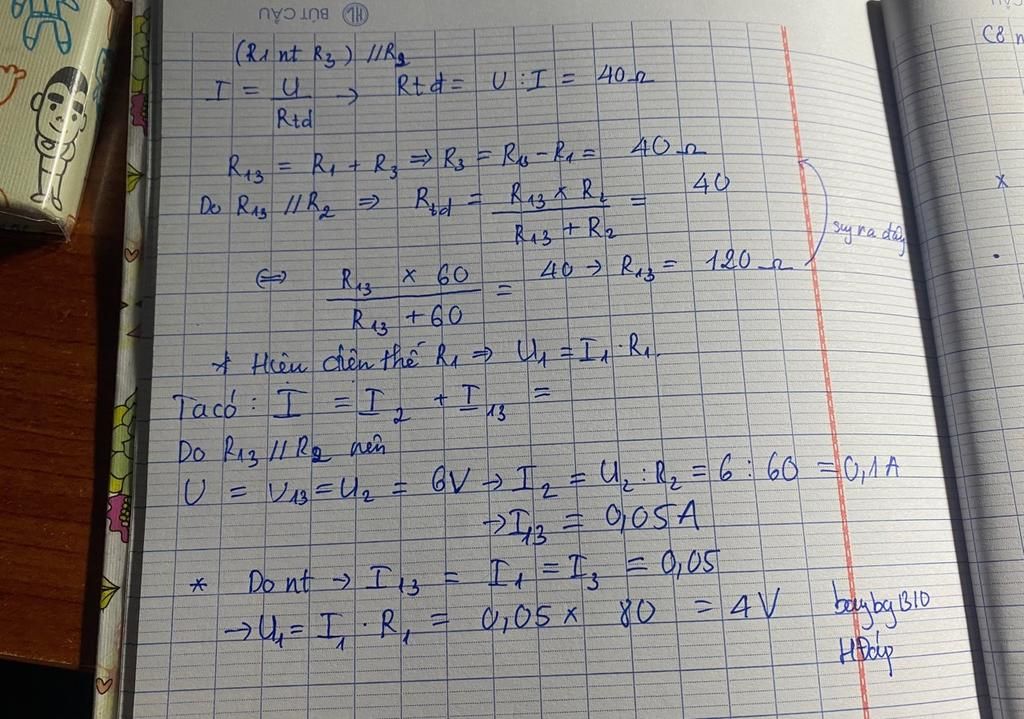 HL BÚT CẬU
(R1 nt R3) // R2
I = U / Rtd → Rtd = U : I = 40Ω
R13 = R1 + R3 ⇒ R3 = R13 - R1 = 40Ω
Do R13 // R2 ⇒ Rtd = (R13 × R2) / (R13 + R2) = 40
suy ra đây
⇔ (R13 × 60) / (R13 + 60) = 40 → R13 = 120Ω
* Hiệu điện thế R1 ⇒ U1 = I1 . R1
Ta có : I = I2 + I13 =
Do R13 // R2 nên
U = U13 = U2 = 6V → I2 = U2 : R2 = 6 : 60 = 0,1A
→ I13 = 0,05A
* Do nt → I13 = I1 = I3 = 0,05
→ U1 = I1 . R1 = 0,05 × 80 = 4V
bayby1310
HĐáp
C8
*